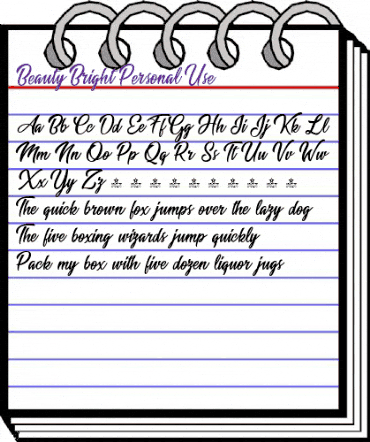 Beauty Bright Personal Use
Aa Bb Cc Dd Ee Ff Gg Hh Ii Jj Kk Ll
Mm Nn Oo Pp Qq Rr Ss Tt Uu Vv Ww
Xx Yy Zz
The quick brown fox jumps over the lazy dog
The five boxing wizards jump quickly
Pack my box with five dozen liquor jugs